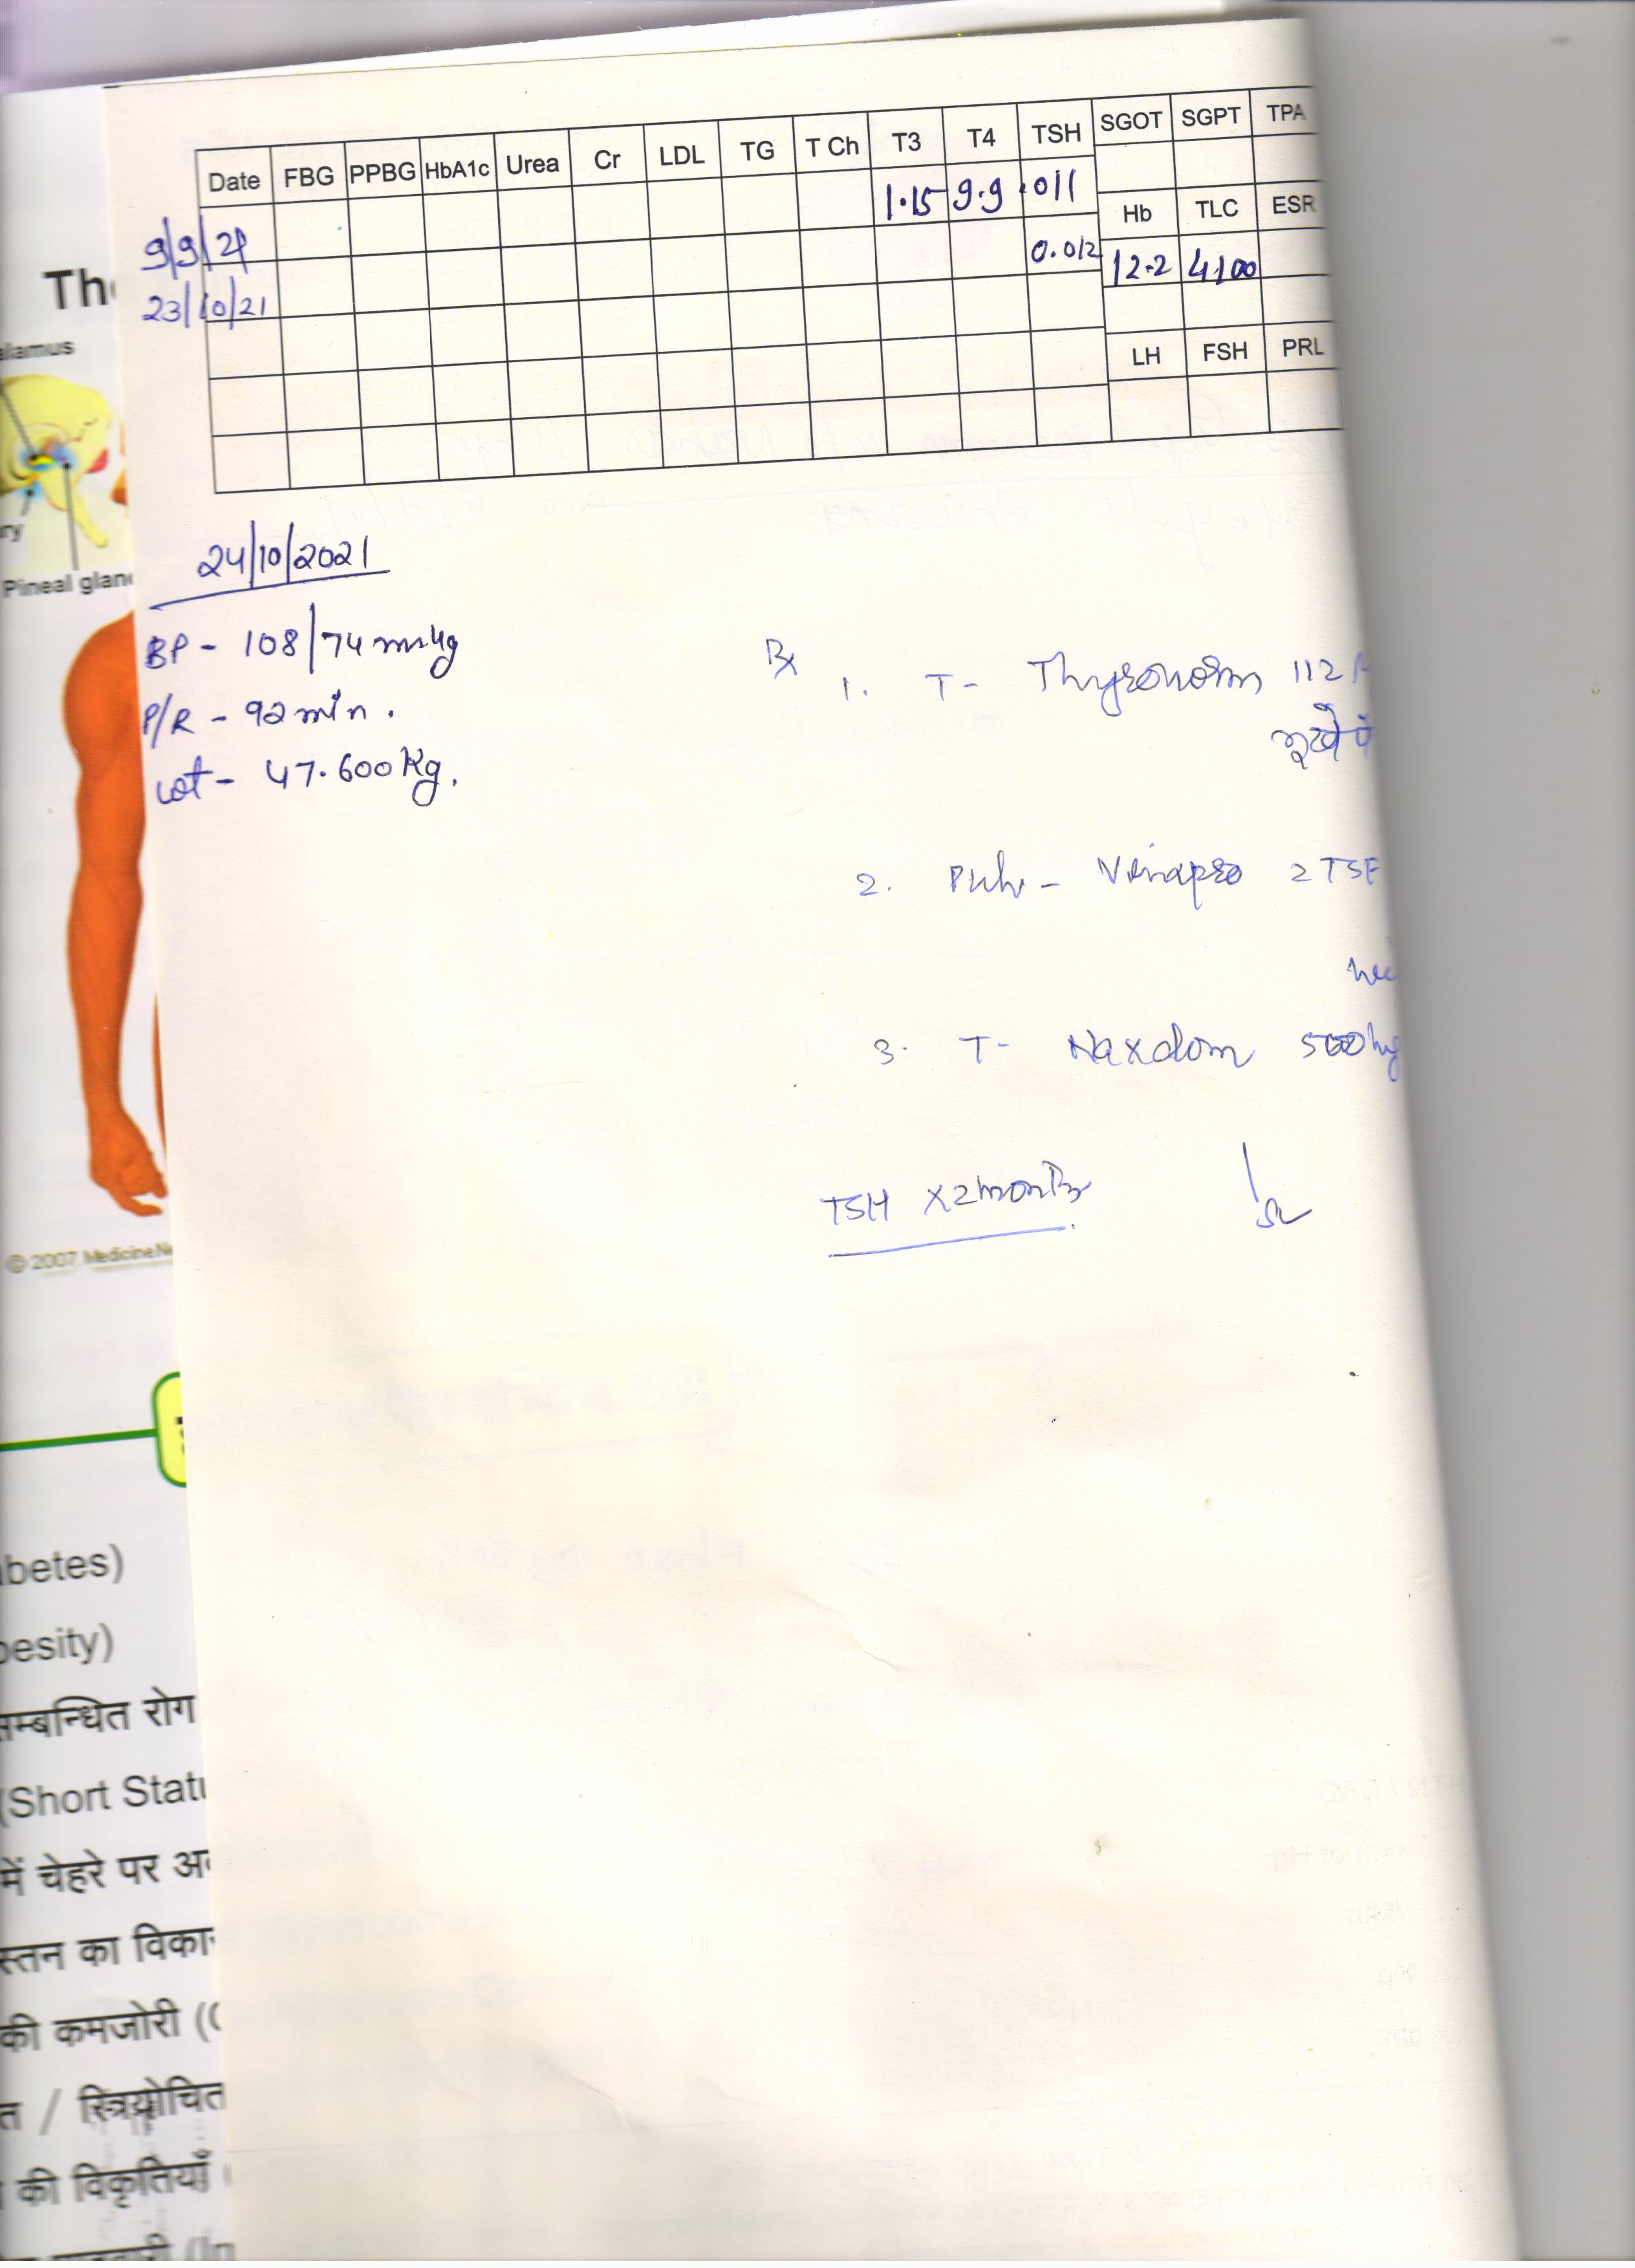 Date FBG PPBG HbA1c Urea Cr LDL TG T Ch T3 T4 TSH SGOT SGPT TPA
9/9/21 1.15 9.9 .011
Hb TLC ESR
23/10/21 0.012 12.2 4100
LH FSH PRL
24/10/2021
BP - 108/74 mmHg
P/R - 92 min.
wt - 47.600 Kg.
Rx
1. T- Thyronorm 112
भूखे पे
2. Pulv - Vinapro 2 TSF
3. T- Naxdom 500 mg
TSH X 2 months
The
alamus
ry
Pineal gland
© 2007 MedicineNe
betes)
besity)
सम्बन्धित रोग
(Short Statu
में चेहरे पर अ
स्तन का विका
की कमजोरी (
त / स्त्रियोचित
की विकृतियाँ